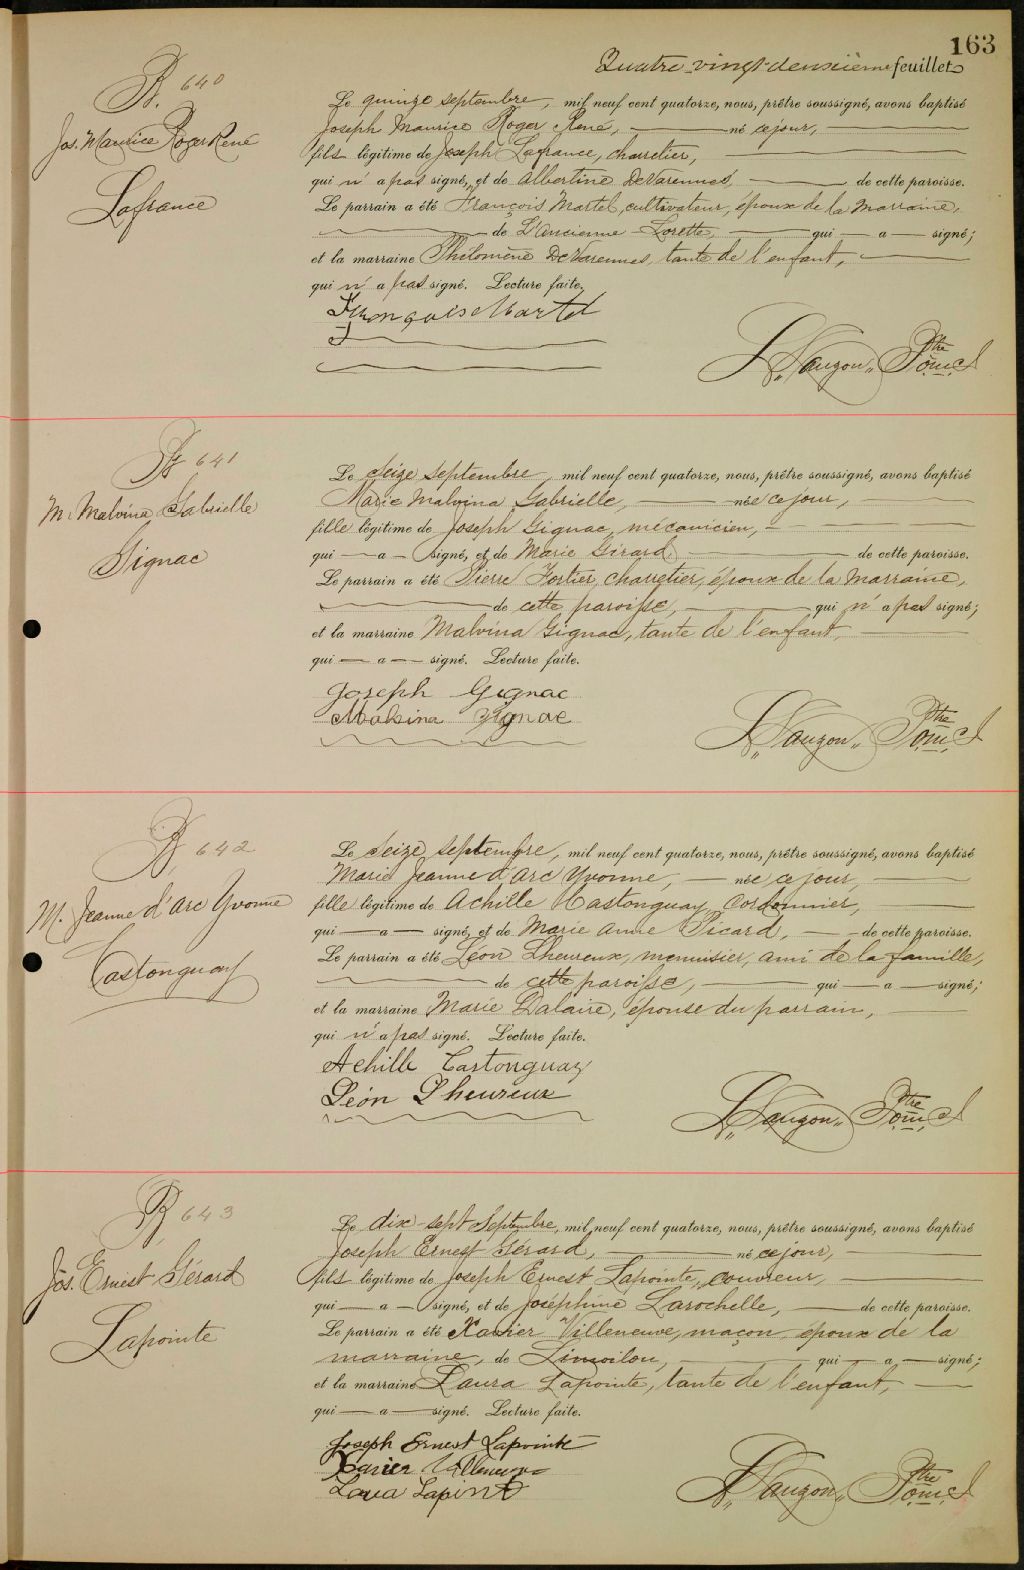 163
Quatre-vingt-deuxième feuillet
B. 640
Jos. Maurice Roger René
Lafrance
Le quinze septembre, mil neuf cent quatorze, nous, prêtre soussigné, avons baptisé
Joseph Maurice Roger René, né ce jour,
fils légitime de Joseph Lafrance, charretier,
qui n'a pas signé, et de Albertine DeVarennes, de cette paroisse.
Le parrain a été François Martel, cultivateur, époux de la marraine,
de L'Ancienne-Lorette, qui a signé;
et la marraine Philomène DeVarennes, tante de l'enfant,
qui n'a pas signé. Lecture faite.
François Martel
L. Nauzon Ptre o.m.i.
B 641
M. Malvina Gabrielle
Gignac
Le seize septembre, mil neuf cent quatorze, nous, prêtre soussigné, avons baptisé
Marie Malvina Gabrielle, née ce jour,
fille légitime de Joseph Gignac, mécanicien,
qui a signé, et de Marie Girard, de cette paroisse.
Le parrain a été Pierre Fortier, charretier, époux de la marraine,
de cette paroisse, qui n'a pas signé;
et la marraine Malvina Gignac, tante de l'enfant,
qui a signé. Lecture faite.
Joseph Gignac
Malvina Gignac
L. Nauzon Ptre o.m.i.
B 642
M. Jeanne d'Arc Yvonne
Castonguay
Le seize septembre, mil neuf cent quatorze, nous, prêtre soussigné, avons baptisé
Marie Jeanne d'Arc Yvonne, née ce jour,
fille légitime de Achille Castonguay, cordonnier,
qui a signé, et de Marie Anne Picard, de cette paroisse.
Le parrain a été Léon Lheureux, menuisier, ami de la famille,
de cette paroisse, qui a signé;
et la marraine Marie Dalaire, épouse du parrain,
qui n'a pas signé. Lecture faite.
Achille Castonguay
Léon Lheureux
L. Nauzon Ptre o.m.i.
B 643
Jos. Ernest Gérard
Lapointe
Le dix-sept Septembre, mil neuf cent quatorze, nous, prêtre soussigné, avons baptisé
Joseph Ernest Gérard, né ce jour,
fils légitime de Joseph Ernest Lapointe, couvreur,
qui a signé, et de Joséphine Larochelle, de cette paroisse.
Le parrain a été Xavier Villeneuve, maçon, époux de la
marraine, de Limoilou, qui a signé;
et la marraine Laura Lapointe, tante de l'enfant,
qui a signé. Lecture faite.
Joseph Ernest Lapointe
Xavier Villeneuve
Laura Lapinte
L. Nauzon Ptre o.m.i.